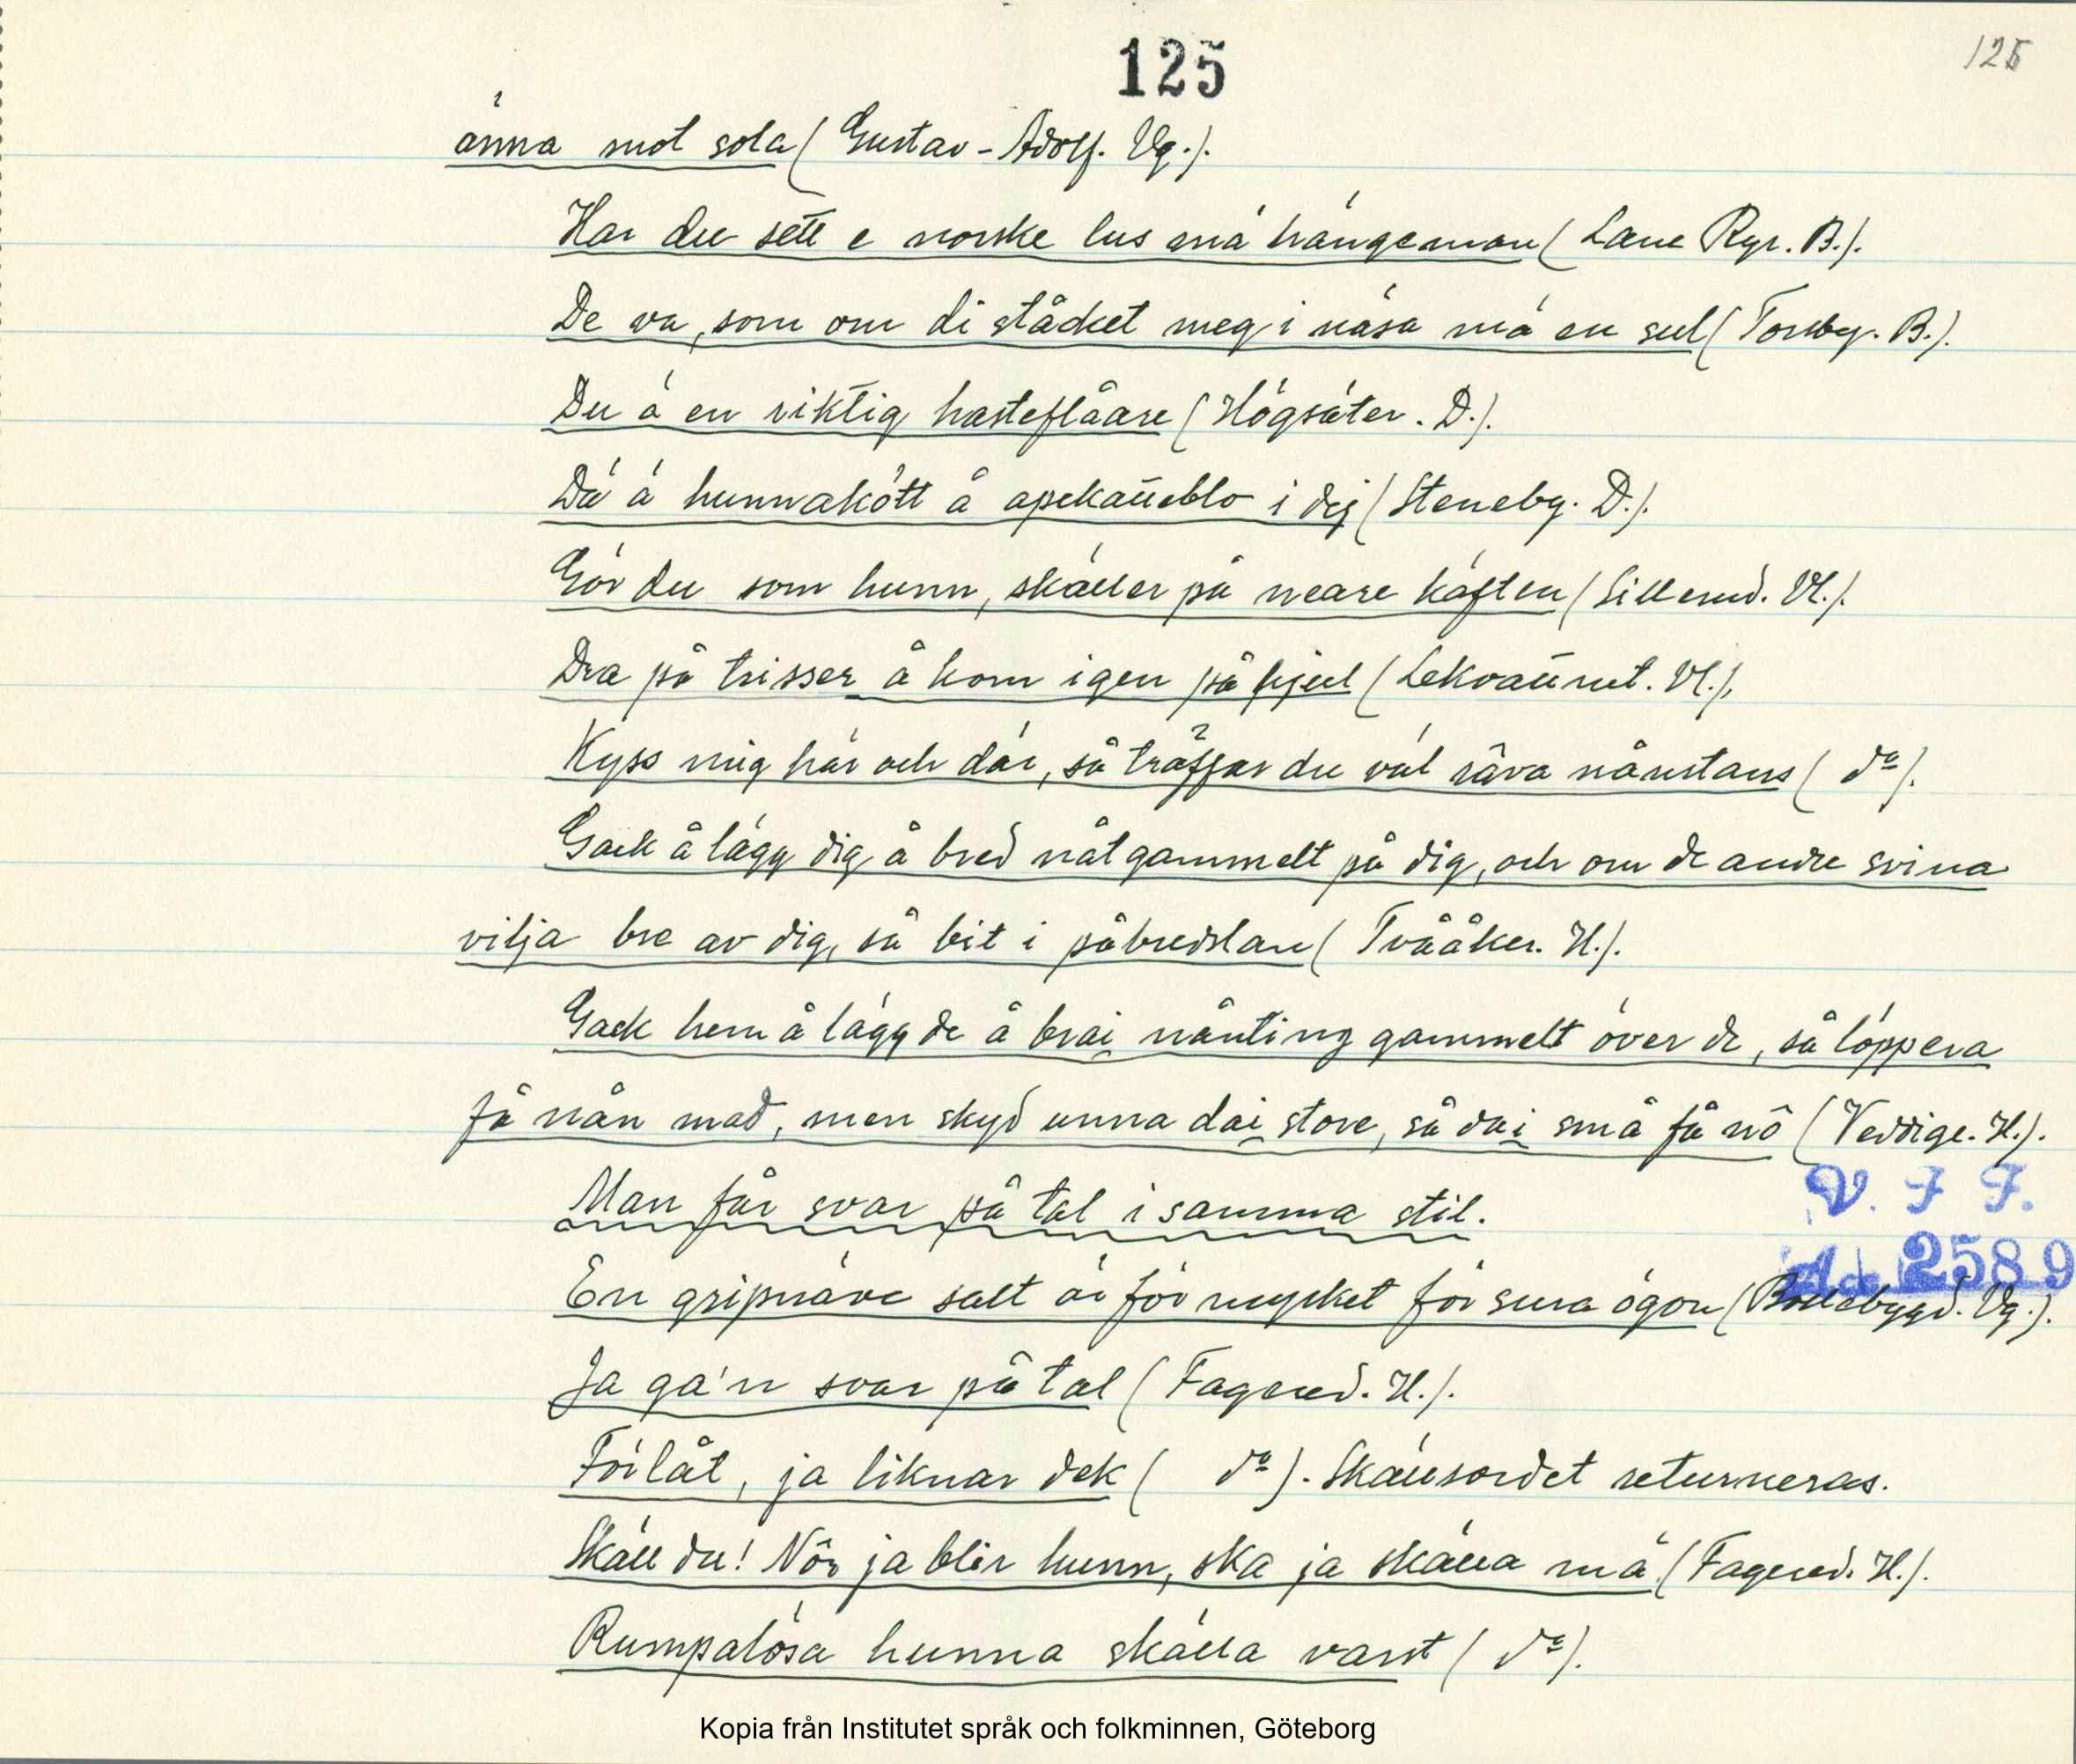 125
125
änna mot sola (Gustav-Adolf. Vg.).
Har du sett e norske lus mä hängeman (Lane Ryr. B.).
De va, som om di ståcket meg i näsa mä en sul (Torsby. B.).
Du ä en riktig hästeflåare (Högsäter. D.).
Dä ä hunnakött å apekatteblo i dej (Steneby. D.).
Gör du som hunn, skäller på neare käften (Sillerud. Vl.).
Dra på trisser å kom igen på hjul (Lekvattnet. Vl.).
Kyss mig här och där, så träffar du väl räva nånstans (do).
Gack å lägg dig å bred nåt gammelt på dig, och om de andre svina
vilja bre av dig, så bit i påbredslan (Tvååker. H.).
Gack hem å lägg de å brai nånting gammelt över de, så löppera
få nån mad, men skyd unna dai store, så dai små få nô (Veddige. H.).
Man får svar på tal i samma stil.
V. F F.
Ack 2589
En gripnäve salt är för mycket för sura ögon (Bollebygd. Vg.).
Ja ga'n svar på tal (Fagered. H.).
Förlåt, ja liknar dek (do). Skällsordet returneras.
Skäll du! Nôr ja blir hunn, ska ja skälla mä (Fagered. H.).
Rumpalösa hunna skälla varst (do).
Kopia från Institutet språk och folkminnen, Göteborg